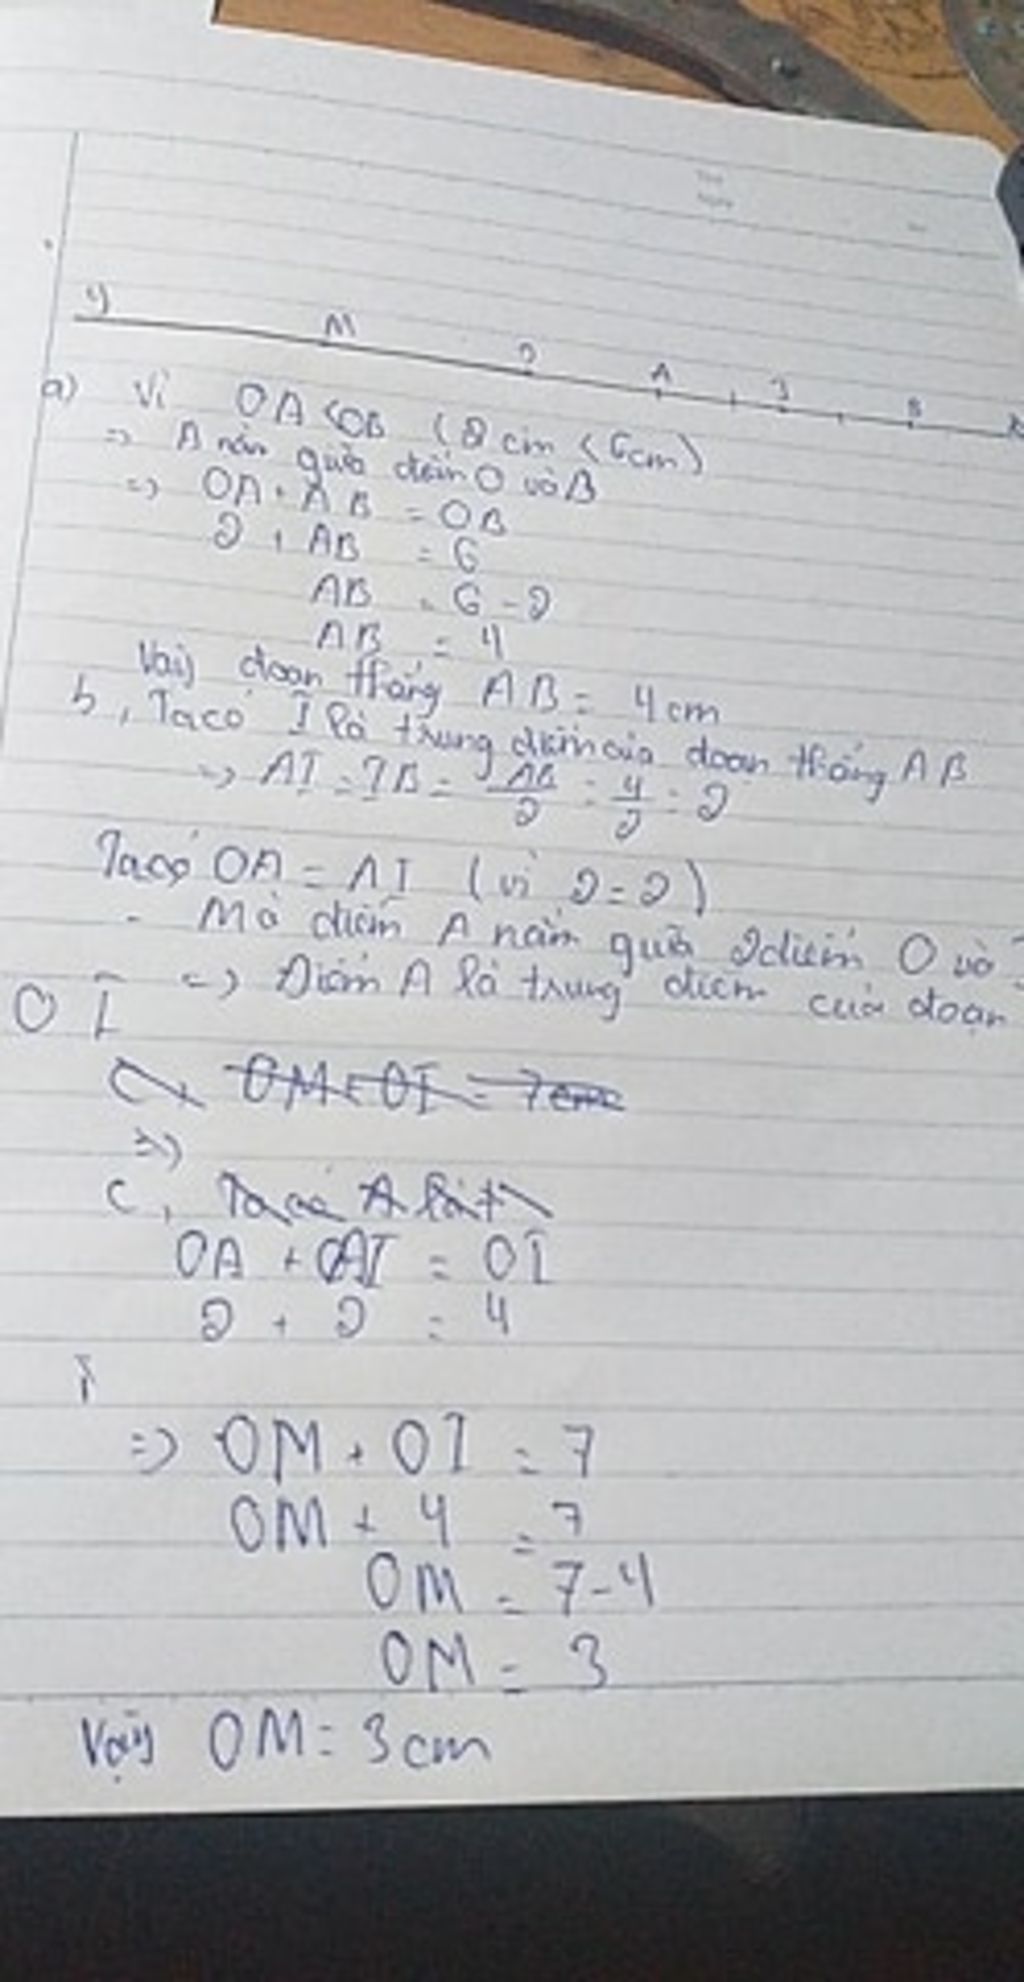 y M O A I B x
a) Vì OA < OB (2 cm < 6cm)
=> A nằm giữa điểm O và B
=> OA + AB = OB
2 + AB = 6
AB = 6 - 2
AB = 4
Vậy đoạn thẳng AB = 4 cm
b, Ta có I là trung điểm của đoạn thẳng AB
=> AI = IB = AB/2 = 4/2 = 2
Ta có OA = AI (vì 2 = 2)
- Mà điểm A nằm giữa 2 điểm O và I
=> Điểm A là trung điểm của đoạn
O I
c, OM + OI = 7cm
=>
c, Ta có A là t
OA + AI = OI
2 + 2 = 4
=> OM + OI = 7
OM + 4 = 7
OM = 7 - 4
OM = 3
Vậy OM = 3 cm